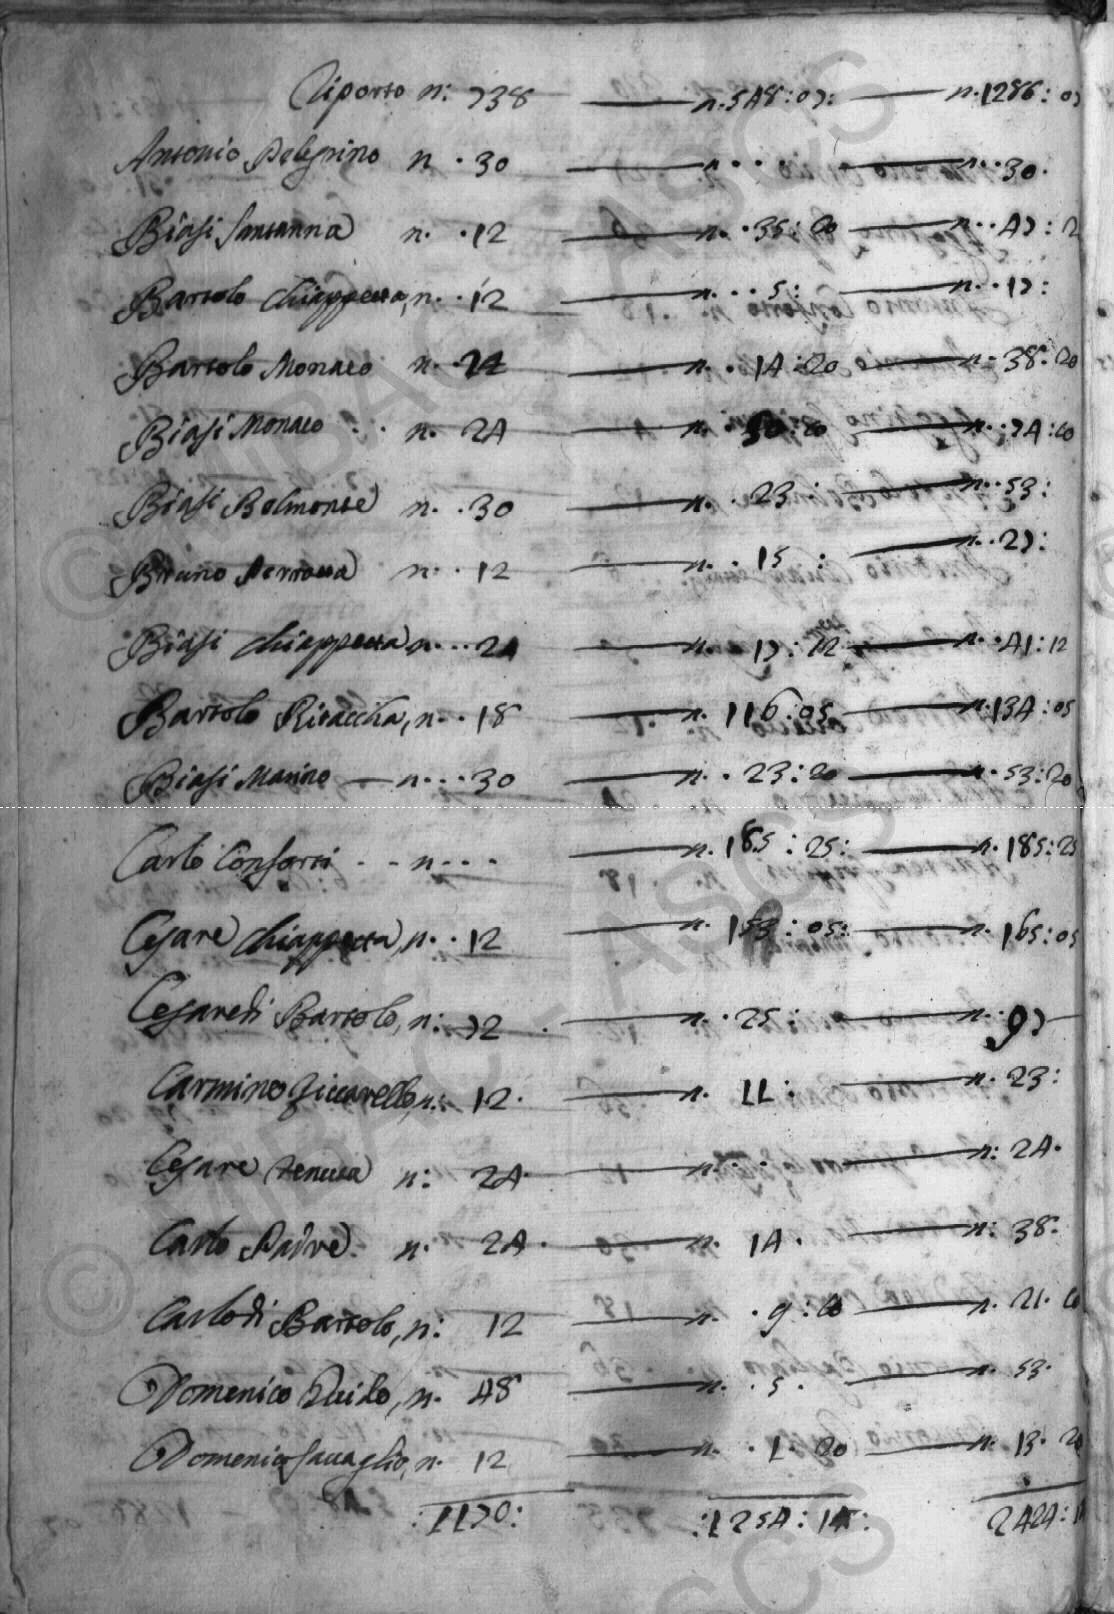 Riporto n: 738 n. 548:07: n. 1286:07
Antonio Pelegrino n. 30 n. . . n. 30.
Biasi Santanna n. 12 n. 35:10 n. 47:
Bartolo Chiappetta, n. 12 n. 5: n. 17:
Bartolo Monaco n. 24 n. 14:20 n. 38:20
Biasi Monaco n. 24 n. 50:10 n. 74:10
Biasi Belmonte n. 30 n. 23: n. 53:
Bruno Perrotta n. 12 n. 15: n. 27:
Biasi Chiappetta n. 24 n. 17:12 n. 41:12
Bartolo Ritaccha, n. 18 n. 116:05 n. 134:05
Biasi Marino n. 30 n. 23:20 n. 53:20
Carlo Conforti n. . . n. 185:25: n. 185:25
Cesare Chiappetta, n. 12 n. 153:05: n. 165:05
Cesare di Bartolo, n: 72 n. 25: n. 97
Carmino Ziccarello, n: 12. n. 11: n. 23:
Cesare Tenuta n: 24. n. . . n: 24.
Carlo Patre n. 24. n. 14. n: 38:
Carlo di Bartolo, n: 12 n. 9:10 n. 21.10
Domenico Guido, n. 48 n. 5. n. 53.
Domenico n. 12 n. 1.20 n. 13.20
:1170: :1254:14: 2424:
© MIBAC - ASCS
© MIBAC - ASCS